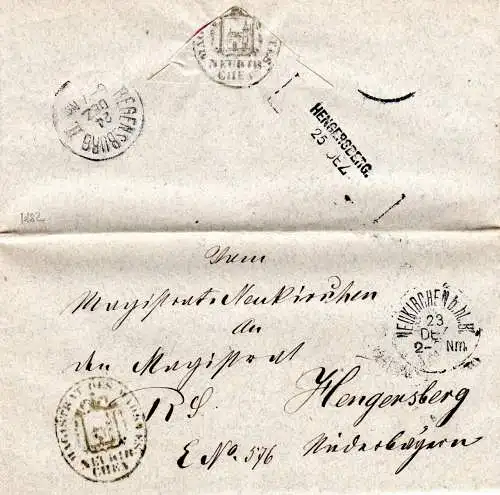 MAG
ST.
NEUKIR
CHEN
REGENSBURG II
24
DEZ
HENGERSBERG.
25 DEZ
1882
Vom
Magistrat Neukirchen
An
den Magistrat
RS.
Hengersberg
E No. 576
Niederbayern
NEUKIRCHEN b. hl. B.
23
DEZ
2- Nm.
MAGISTRAT DES MARKTES
NEUKIR
CHEN